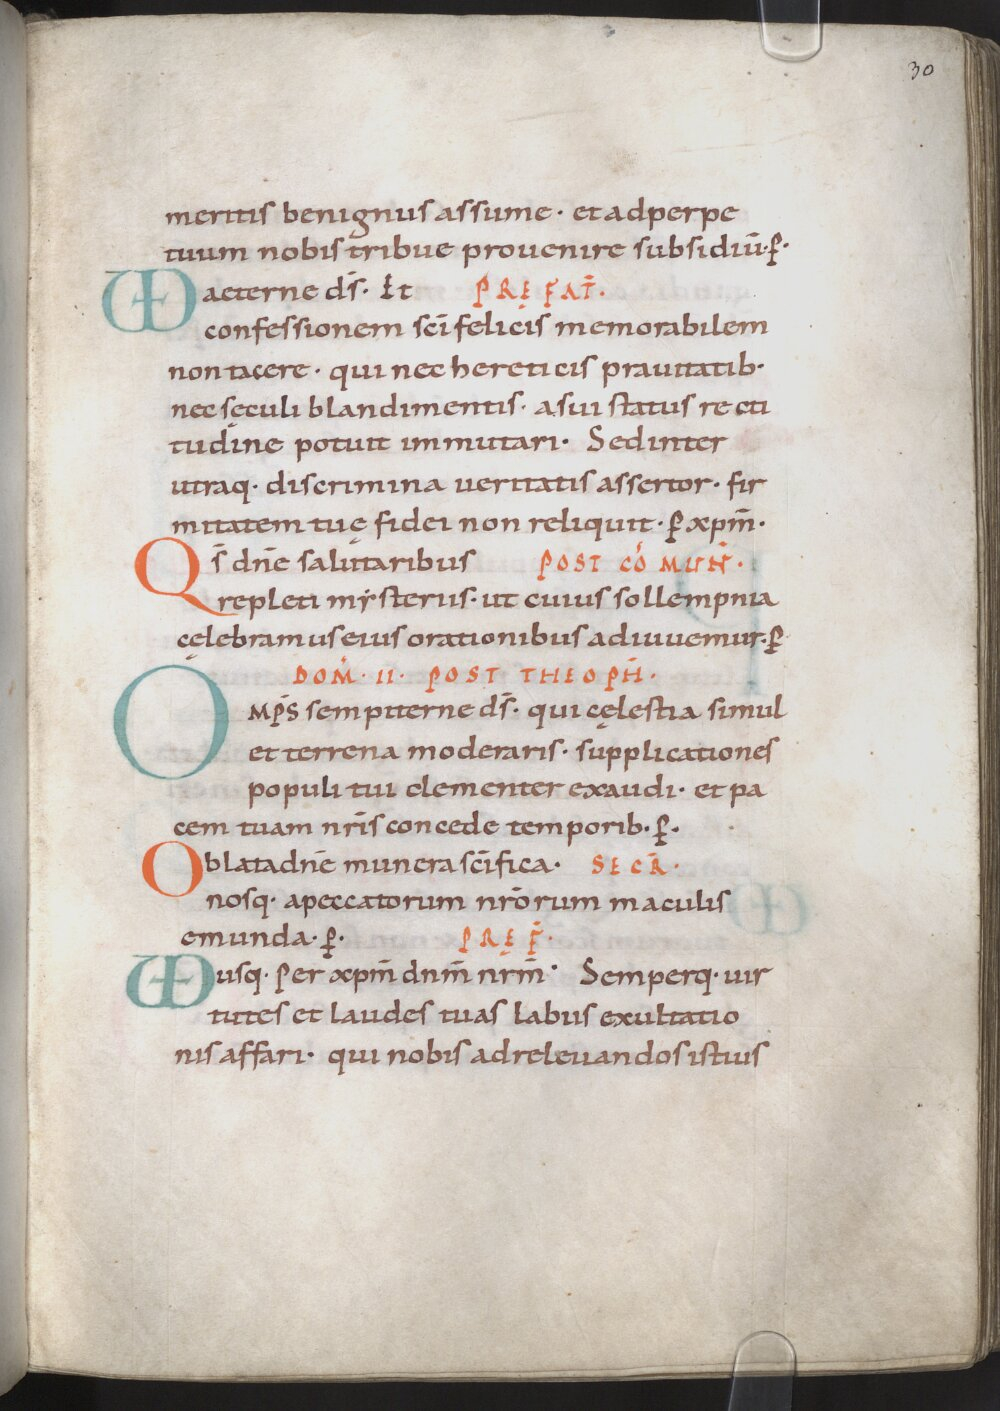 30
meritis benignus assume · et ad perpe
tuum nobis tribue prouenire subsidiū· p̄·
VD aeterne ds̄· Et PRĘFAT̄·
confessionem sc̄i felicis memorabilem
non tacere · qui nec hereticis prauitatib·
nec sęculi blandimentis · a sui status recti
tudine potuit immutari · Sed inter
utraq· discrimina ueritatis assertor · fir
mitatem tuę fidei non reliquit · p̄ xp̄m̄·
Qs̄ dn̄e salutaribus POST CŌMUN̄·
repleti mysteriis · ut cuius sollempnia
cęlebramus eius orationibus adiuuemur· p̄
DOM̄· II· POST THEOPH̄·
OMP̄S sempiterne ds̄· qui cęlestia simul
et terrena moderaris · supplicationes
populi tui clementer exaudi · et pa
cem tuam nr̄is concede temporib· p̄·
Oblata dn̄e munera sc̄ifica · SECR̄·
nosq· a peccatorum nr̄orum maculis
emunda · p̄· PRĘF̄·
VD usq· Per xp̄m̄ dn̄m̄ nr̄m̄· Semperq· uir
tutes et laudes tuas labiis exultatio
nis affari · qui nobis ad releuandos istius